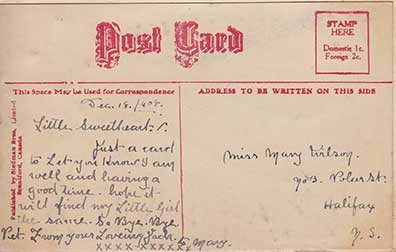 Post Card
STAMP
HERE
Domestic 1c.
Foreign 2c.
This Space May be Used for Correspondence
ADDRESS TO BE WRITTEN ON THIS SIDE
Published by Stedman Bros., Limited
Brantford, Canada
Dec. 18./908.
Little Sweetheart:
Just a card
to Let you know I am
well and having a
good time. hope it
will find my Little Girl
the same. So Bye. Bye
Pet. From your Loveing
to Mary.
xxxxxxxxx
Miss Mary Wilson.
St.
Halifax
N.S.